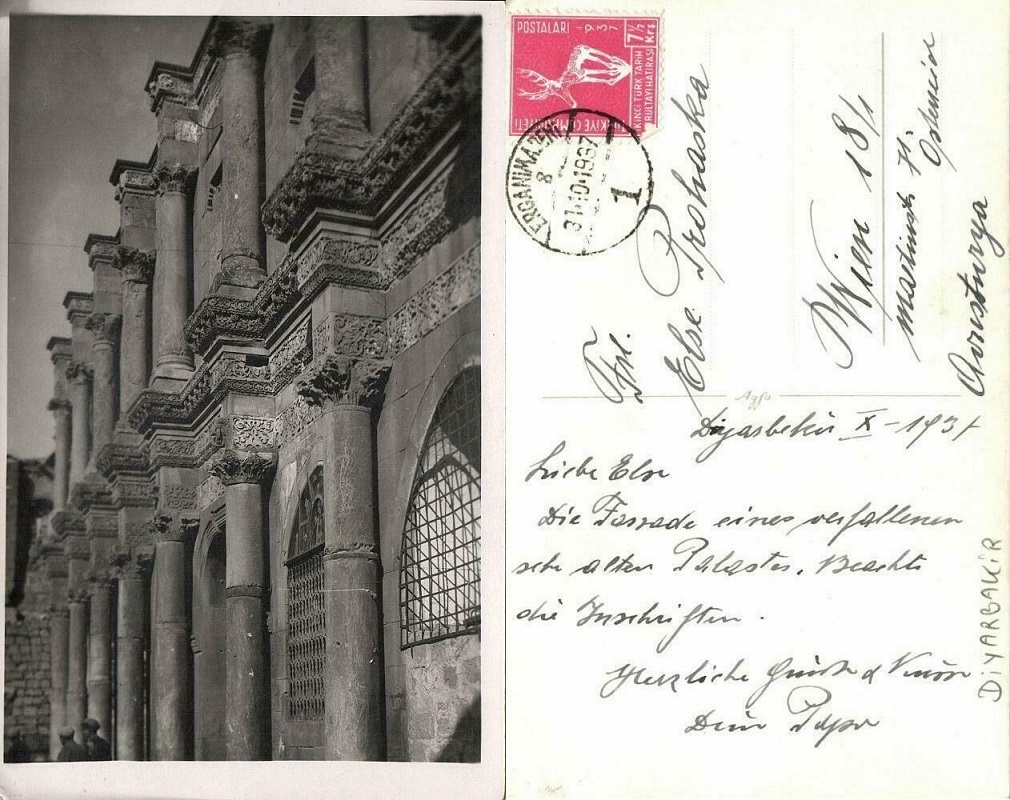 POSTALARI 1937
7½ Krş
İKİNCİ TÜRK TARİH
KURULTAYI HATIRASI
TÜRKİYE CUMHURİYETİ
ERGANİMADENİ
8
31-10-1937
1
Frl.
Else Prohaska
Wien 18/1
71.
Österreich
Avusturya
Agfa
Diyarbekir X - 1937
Liebe Else
Die Fassade eines verfallenen
sehr alten Palastes. Beachte
die Inschriften.
Herzliche Grüsse & Küsse
Dein Papa
DİYARBAKIR